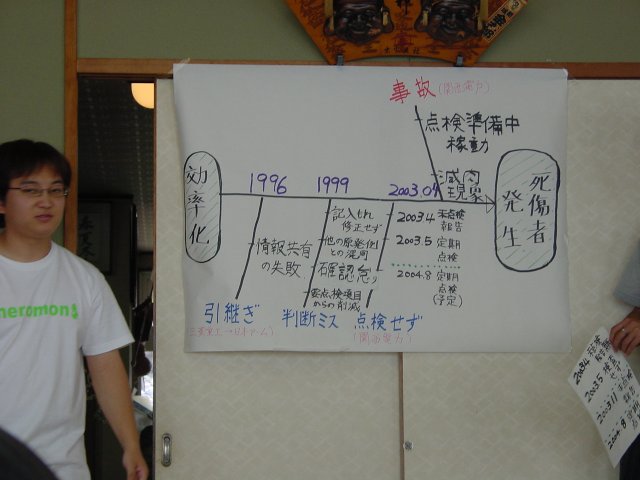 事故(関西電力)
点検準備中
稼動
減肉
現象
効率化
1996
1999
2003.04
死傷者
発生
情報共有
の失敗
記入もれ
修正せず
他の原発
との混同
確認怠り
要点検項目
からの削減
2003.4 未点検
報告
2003.5 定期
点検
2004.8 定期
点検
(予定)
引継ぎ
判断ミス
点検せず
(関西電力)
heromon
2003.4
2003.5
2003.11
2004.8